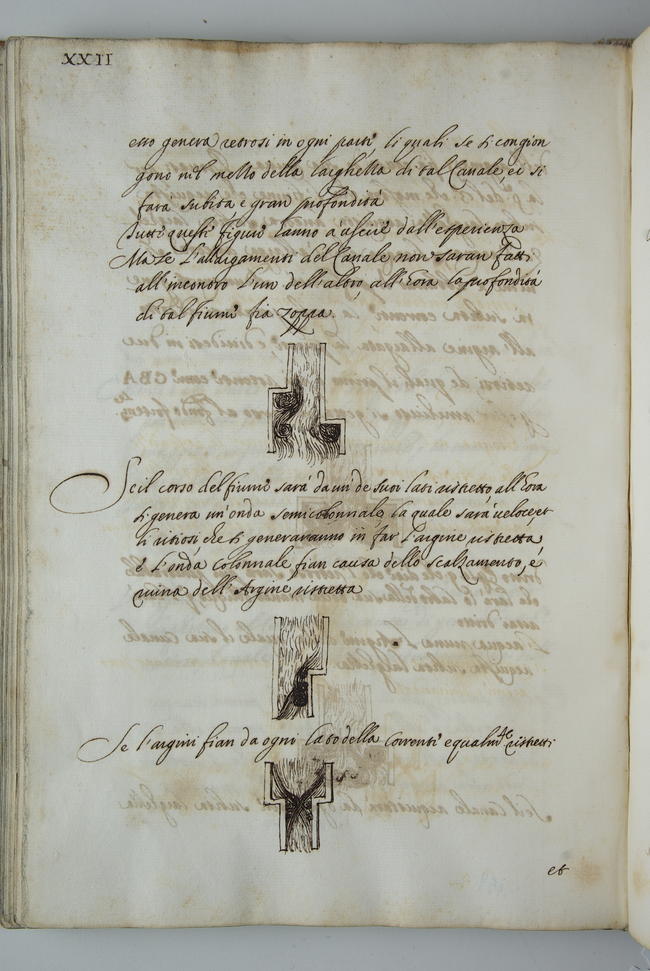 XXII
esso genera retrosi in ogni parte, li quali se ti congion
gono nel mezzo della larghezza di tal Canale, ei si
farà subita e gran profondità
Tutte queste figure hanno à uscire dall'esperienza
Ma se l'allargamenti del Canale non saran fatti
all'incontro l'un dell'altro, all'hora la profondità
di tal fiume fia zoppa.
Se il corso del fiume sarà da un de suoi lati ristretto all'hora
si genera un'onda semicolonnale, la quale sarà veloce, et
li ritrosi che si generaranno in far l'argine ristretta
è l'onda colonnale fian causa dello scalzamento, é
ruina dell'Argine ristretta
Se l'argini fian da ogni lato della corrente equalmte ristretti
et